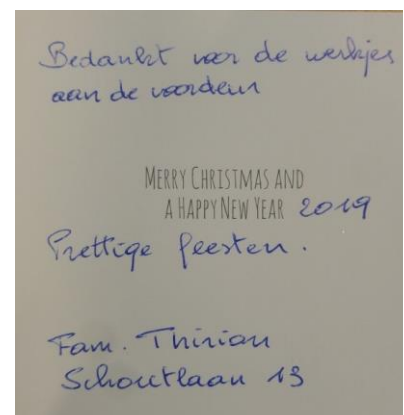 Bedankt voor de werkjes
aan de voordeur
MERRY CHRISTMAS AND
A HAPPY NEW YEAR 2019
Prettige feesten.
Fam. Thirion
Schoutlaan 13